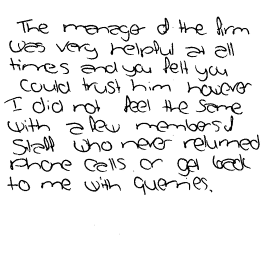 The manager of the firm
was very helpful at all
times and you felt you
could trust him however
I did not feel the same
with a few members of
staff who never returned
phone calls or get back
to me with queries.